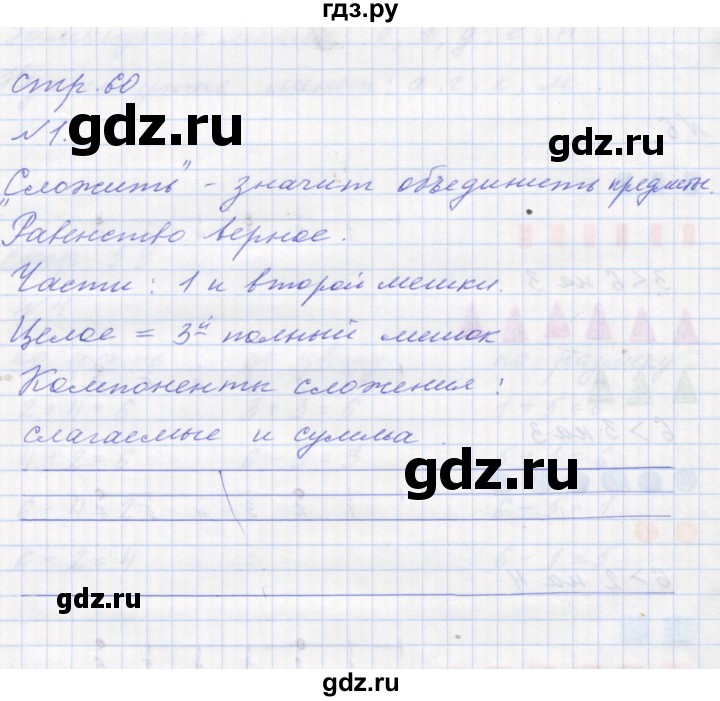 гдз.ру
стр. 60
gdz.ru
№1.
gdz.ru
"Сложить" - значит объединить предметы.
Равенство верное.
Части: 1 и второй мешки.
Целое = 3й полный мешок
Компоненты сложения:
слагаемые и сумма.
gdz.ru
gdz.ru
gdz.ru